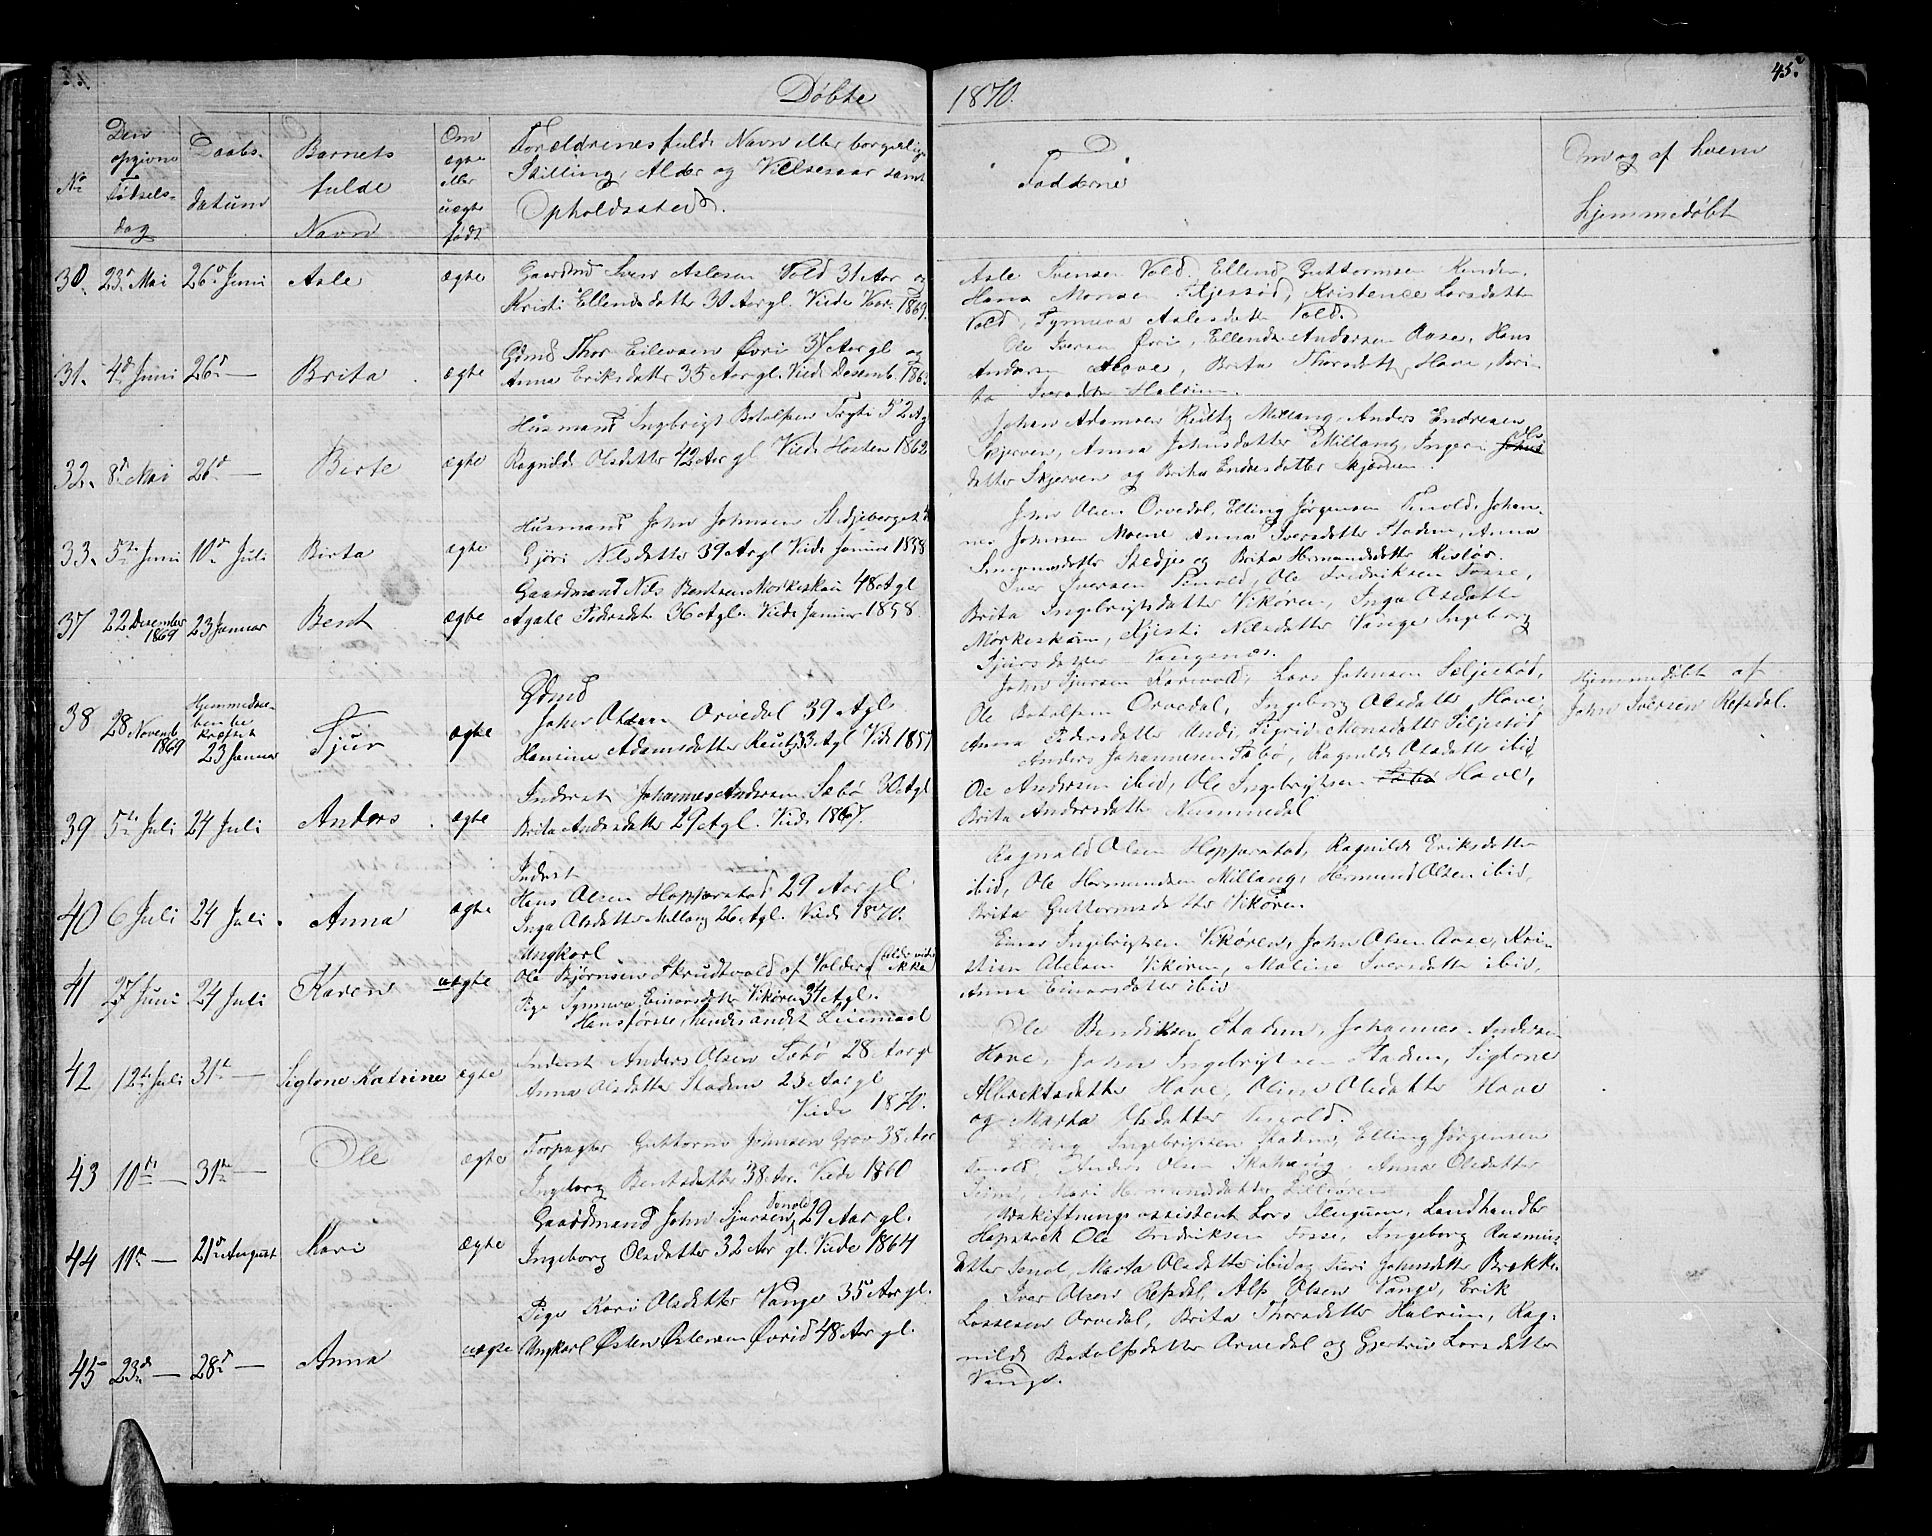 Døbte 1870.
45.
No
Den opgivne Fødselsdag
Daabsdatum
Barnets fulde Navn
Om ægte eller uægte født
Forældrenes fulde Navn eller borgerlige
Stilling, Alder og Vielsesaar samt
Opholdssted.
Fadderne
Om og af hvem
hjemmedøbt
30. 23d Mai 26d Juni Asle ægte
Gaardmd Sven Aslesen Vold 31 Aar og
Kristi Ellendsdatter 30 Aar gl. Viede Vaar. 1869.
Asle Svensen Vold, Ellend Guttormsen
Hans Monsen Kristence Larsdatter
Vold, Synneva Aslesdatter Vold.
31. 4d Juni 26d — Brita ægte
Gdmd Thor Eilevsen Øvri 37 Aar gl og
Anna Eriksdatter 35 Aar gl. Viede Desemb.
Ole Iversen Øvri, Ellend Andersen Aase, Hans
Andersen Hove, Brita Thorsdatt Hove,
Iversdatter Halrim.
32. 8d Mai 26d — Birte ægte
Husmand Ingebrigt Botolfsen 52 Ag
Ragnilde Olsdatter 42 Aar gl Viede Høsten 1862
Johan Adamsen Millang, Anders Endresen
Skjerven, Anna Johnsdatter Millang, Ingeri
datter Skjerven og Brita Endresdatter Skjerven.
33. 5te Juni 10d Juli Birta ægte
Husmand John Johnsen
Gjøri Nilsdatter 39 Aar gl Viede Januar 1858
John Olsen Orvedal, Elling Jørgensen Tenold, Johan-
nes Johnsen Moene Anna Iversdatter Stadem, Anna
Simonsdatter Stedje og Brita Hermundsdatter
37 22 Desember 1869 23 Januar Bent ægte
Gaardmand Nils Bentsen Mørkeskain 48 Agl
Agate Pedersdatr 36 Agl. Viede Januar 1858
Iver Iversen Tenold, Ole Fredriksen Fosse,
Brita Ingebrigtsdatter Vikøren, Inga Olsdatter
Mørkeskain, Kristi Nilsdatter Vange Ingeborg
Sjursdatter Vangsnæs.
38 28 Novemb 1869 Hjemmedaaben bekræftet 23 Januar Sjur ægte
Gdmd
John Olsen Orvedal 39 Agl.
Hansine Adamsdatter 33 Agl Vied 1857
John Sjursen Lars Johnsen Seljestød,
Ole Botolfsen Orvedal, Ingeborg Olsdatter Hove,
Anna Pedersdatter Undi, Sigrid Monsdatter Seljestød
Hjemmedøbt af
John Iversen Refsdal.
39 5te Juli 24 Juli Anders ægte
Inderst Johannes Andersen Sæbø 30 Agl
Brita Andersdatter 29 Agl. Viede 1867.
Anders Johannesen Sæbø, Ragnilde Olsdatter ibid,
Ole Andersen ibid, Ole Ingebrigtsen Hove,
Brita Andersdatter Nummedal
40 6 Juli 24 Juli. Anna ægte
Inderst
Hans Olsen Hopperstad 29 Aar gl.
Inga Olsdatter Millang 26 Agl. Viede 1870.
Ragnald Olsen Hopperstad, Ragnilde Eriksdatter
ibid, Ole Hermundsen Millang, Hermund Olsen ibid,
Brita Guttormsdatter Vikøren
41 27 Juni 24 Juli Karen uægte
Ungkarl
Ole Bjørnsen Skrudtvold af Valders
Pige Synneva Einarsdatter Vikøren 34 Agl.
Hans første, hendes andet Leiermaal
Einar Ingebrigtsen Vikøren, John Olsen Aase, Kri-
stian Abelsen Vikøren, Maline Iversdatter ibid,
Anna Einarsdatter ibid
42 12te Juli 31te — Siglone Katrine ægte
Inderst Anders Olsen Sæbø 28 Aar gl
Anna Olsdatter Stadem 23 Aar gl
Viede 1870.
Ole Bendiksen Stadem, Johannes Andersen
Hove, John Ingebrigtsen Stadem, Siglone
Albrektsdatter Hove, Oline Olsdatter Hove
og Marta Olsdatter Tenold.
43 10de — 31te — Ole ægte
Forpagter Guttorm Grov 35 Aar
Ingeborg Bentsdatter 38 Aar. Viede 1860
Elling Ingebrigtsen Stadem, Elling Jørgensen
Tenold, Anders Olsen Anna Olsdatter
Mari Hermundsdatter
44 11te — 21de August Mari ægte
Gaardmand John Sjursen Tenold 29 Aar gl.
Ingeborg Olsdatter 32 Aar gl. Viede 1864
Udskiftningsassistent Lars Landhandler
Hopstock Ole Fredriksen Fosse, Ingeborg Rasmus-
datter Tenol, Marta Olsdatter ibid og Siri Johnsdatter Brække.
45 23de — 28d — Anna uægte
Pige Kari Olsdatter Vange 35 Aar gl.
Ungkarl Østen Østensen Øvrid 48 Aar gl.
Iver Olsen Refsdal, Alf Olsen Vange, Erik
Lassesen Orvedal, Brita Thorsdatter Halrim, Rag-
nilde Botolfsdatter Orvedal og Gjertrud Larsdatter
Vange.